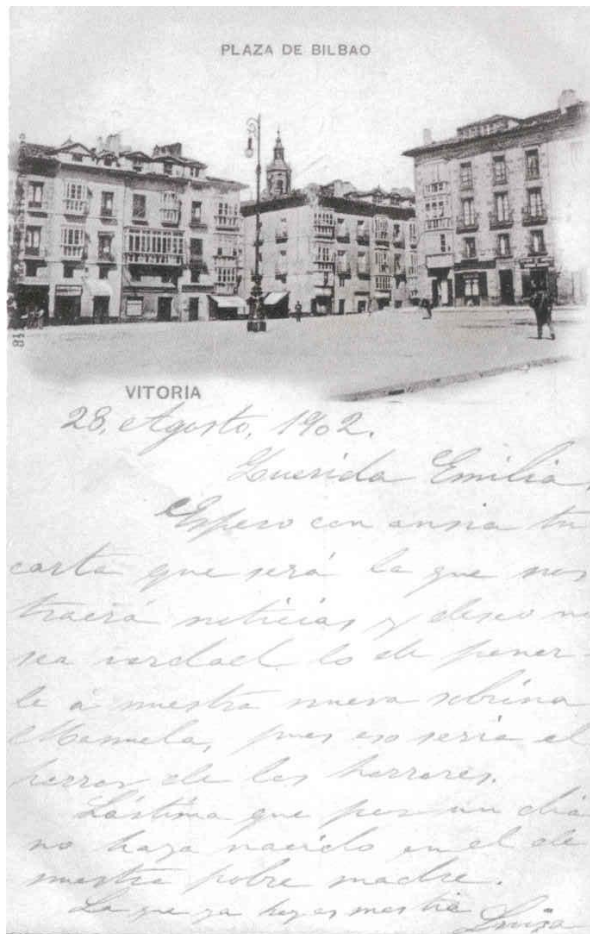 PLAZA DE BILBAO
VITORIA
28, Agosto, 1902.
Querida Emilia,
Espero con ansia tu
carta que será la que nos
traerá noticias, y deseo no
sea verdad lo de poner-
le á nuestra nueva sobrina
Manuela, pues eso seria el
horror de los horrores.
Lástima que por un dia
no haya nacido en el de
nuestra pobre madre.
La que ya
Luisa